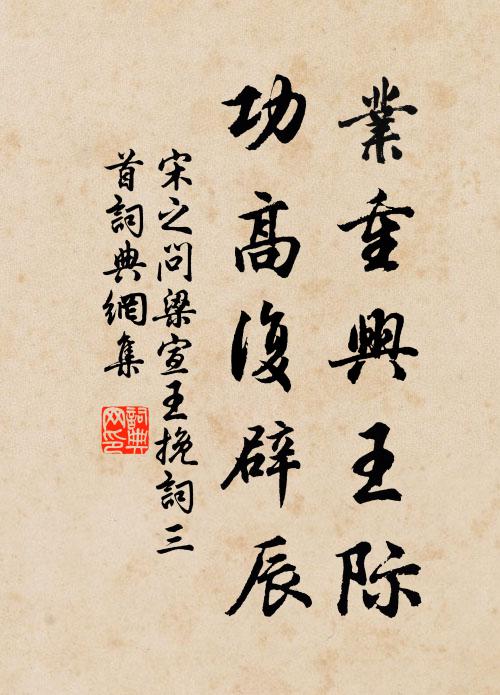 業重興王际
功高復辟辰
宋之问梁宣王挽詞三
首詞典網集
詞典
网印